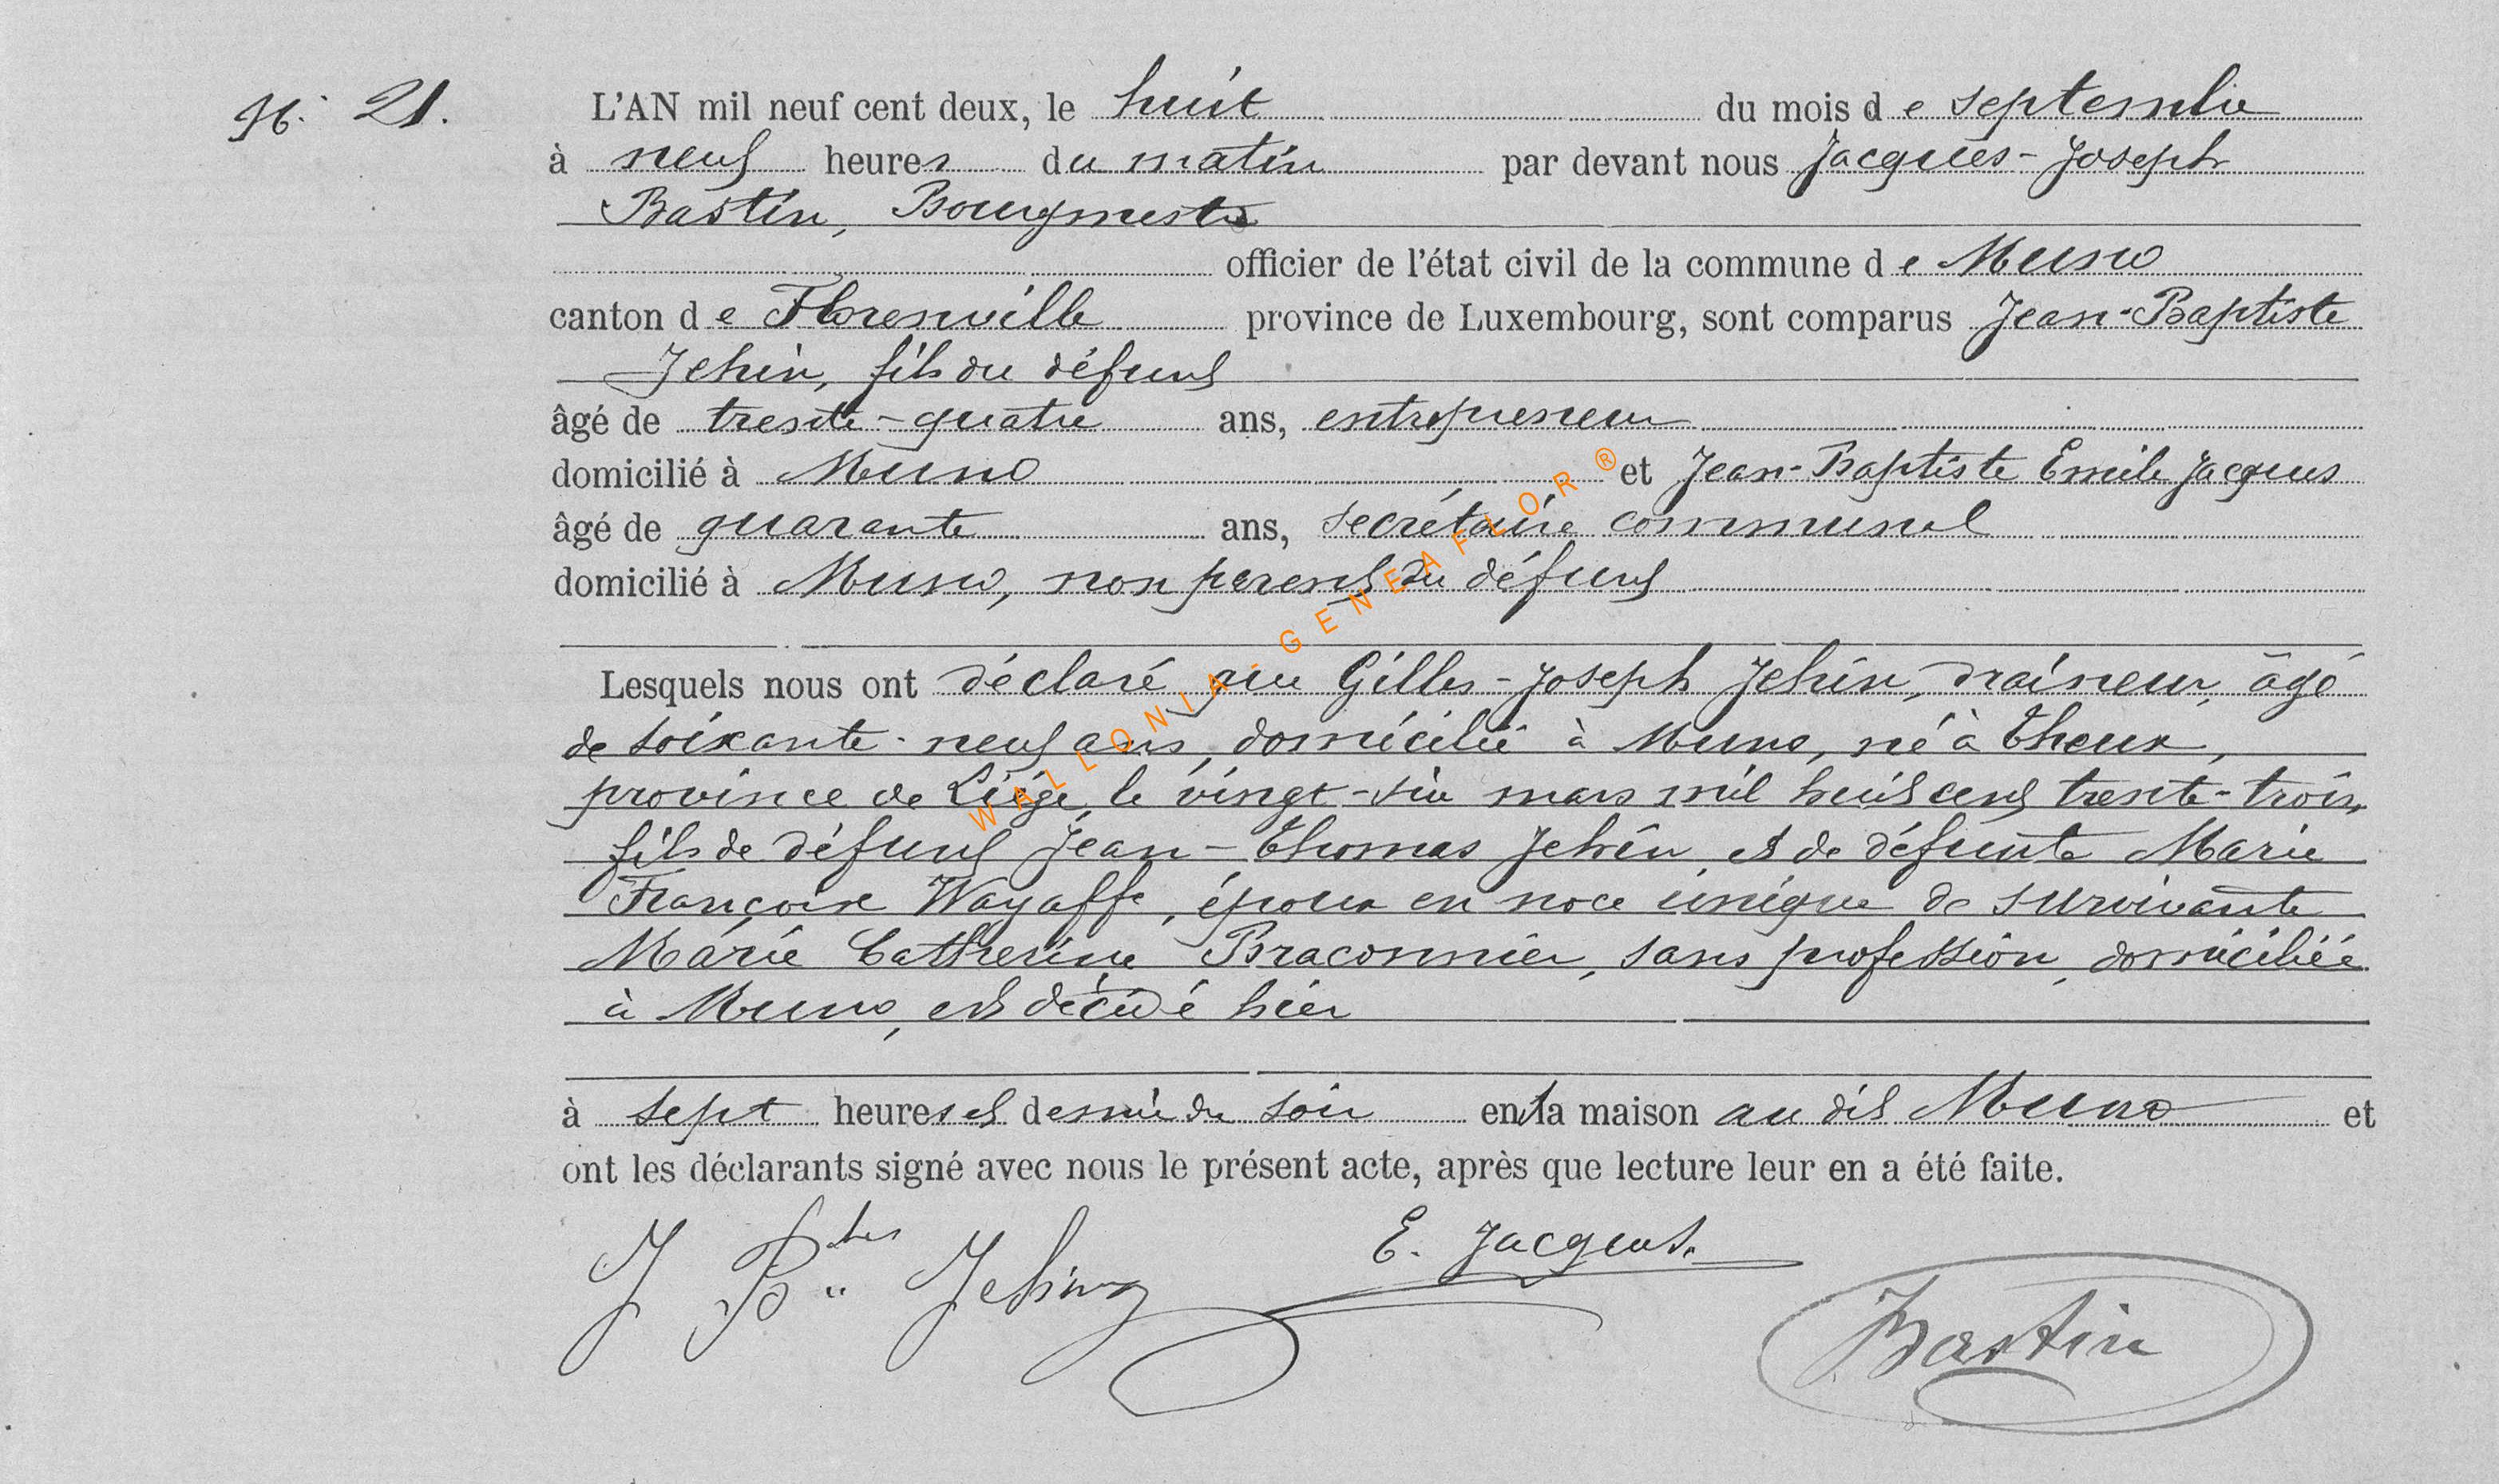 N: 21.
L'AN mil neuf cent deux, le huit du mois de septembre
à neuf heures du matin par devant nous Jacques-Joseph
Bastin, Bourgmestre
officier de l'état civil de la commune de Muno
canton de Florenville province de Luxembourg, sont comparus Jean-Baptiste
Jehin, fils du défunt
âgé de trente-quatre ans, entrepreneur
domicilié à Muno et Jean-Baptiste Emile Jacques
âgé de quarante ans, secrétaire communal
domicilié à Muno, non parent du défunt
Lesquels nous ont déclaré que Gilles-Joseph Jehin, draineur, âgé
de soixante-neuf ans, domicilié à Muno, né à Theux,
province de Liége, le vingt-six mars mil huit cent trente-trois,
fils de défunt Jean-Thomas Jehin et de défunte Marie
Françoise Wayaffe, époux en noce unique de survivante
Marie Catherine Braconnier, sans profession, domiciliée
à Muno, est décédé hier
à sept heures et demie du soir en la maison au dit Muno et
ont les déclarants signé avec nous le présent acte, après que lecture leur en a été faite.
J Btes Jehin E. Jacques.
Bastin
WALLONIA-GENEAFLOR ®